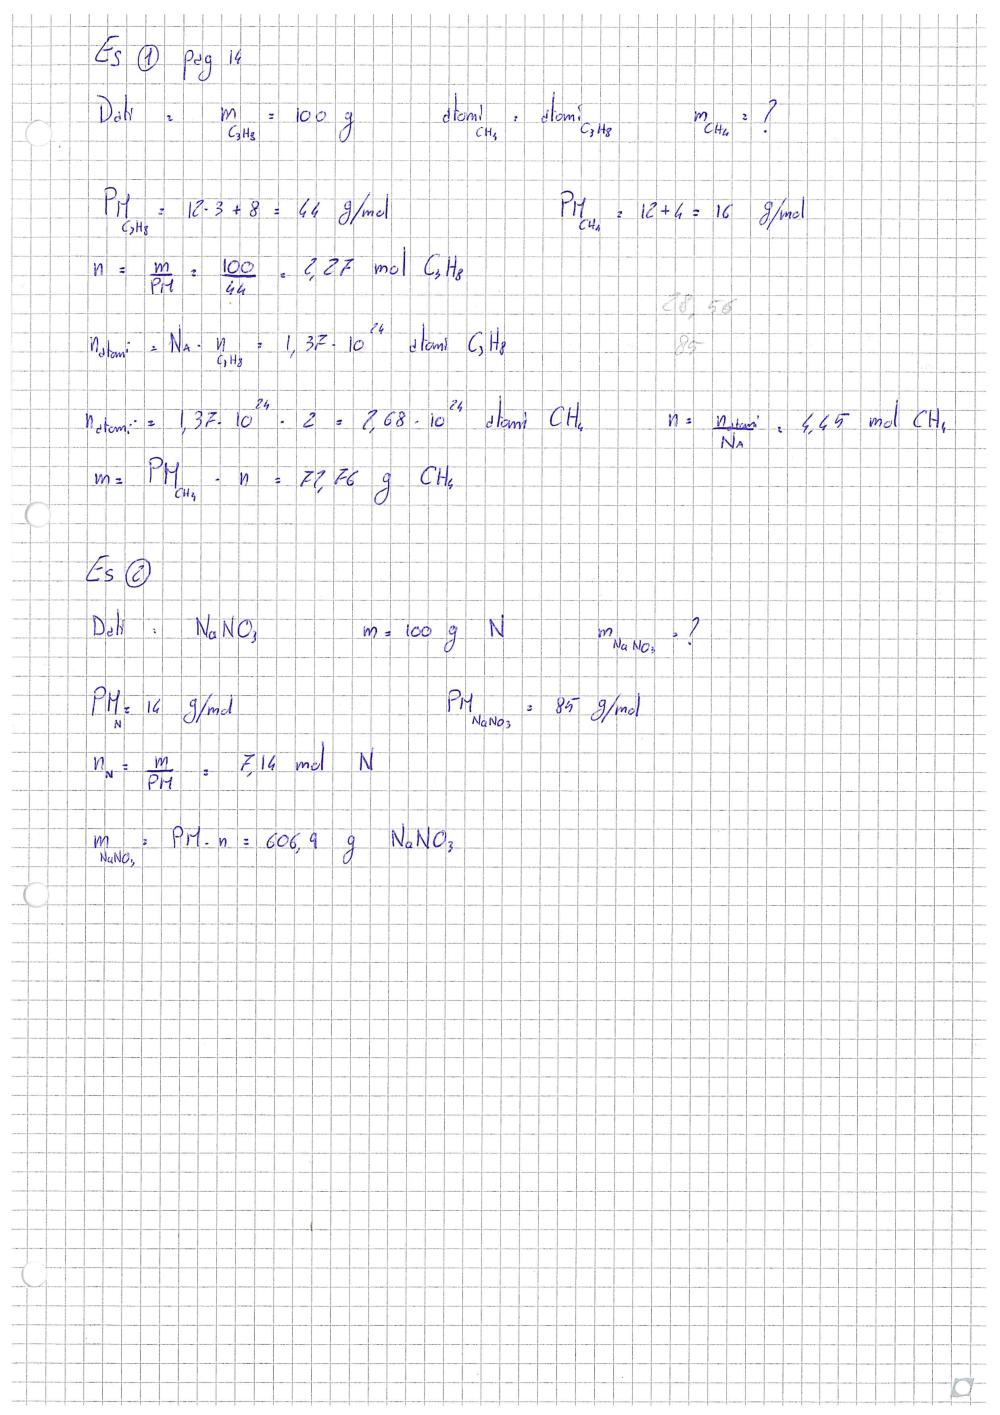 Es ① pag 14
Dati : m C₃H₈ = 100 g atomi CH₄ = atomi C₃H₈ m CH₄ = ?
PM C₃H₈ = 12·3 + 8 = 44 g/mol PM CH₄ = 12+4 = 16 g/mol
n = m/PM = 100/44 = 2,27 mol C₃H₈
28,56
n atomi = NA · n C₃H₈ = 1,37·10²⁴ atomi C₃H₈
85
n atomi = 1,37·10²⁴ · 2 = 2,68·10²⁴ atomi CH₄ n = n atomi/NA = 4,45 mol CH₄
m = PM CH₄ · n = 71,76 g CH₄
Es ②
Dati : NaNO₃ m = 100 g N m NaNO₃ = ?
PM N = 14 g/mol PM NaNO₃ = 85 g/mol
n N = m/PM = 7,14 mol N
m NaNO₃ = PM · n = 606,9 g NaNO₃